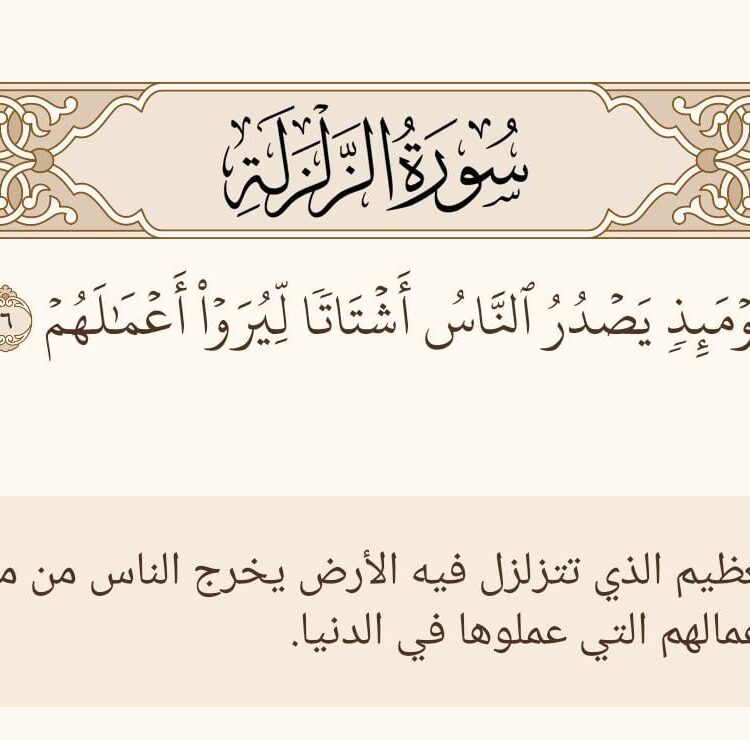 سُورَةُ الزَّلْزَلَةِ
وْمَئِذٍ يَصْدُرُ ٱلنَّاسُ أَشْتَاتًا لِّيُرَوْا۟ أَعْمَـٰلَهُمْ ٦
ظيم الذي تتزلزل فيه الأرض يخرج الناس من م
عمالهم التي عملوها في الدنيا.